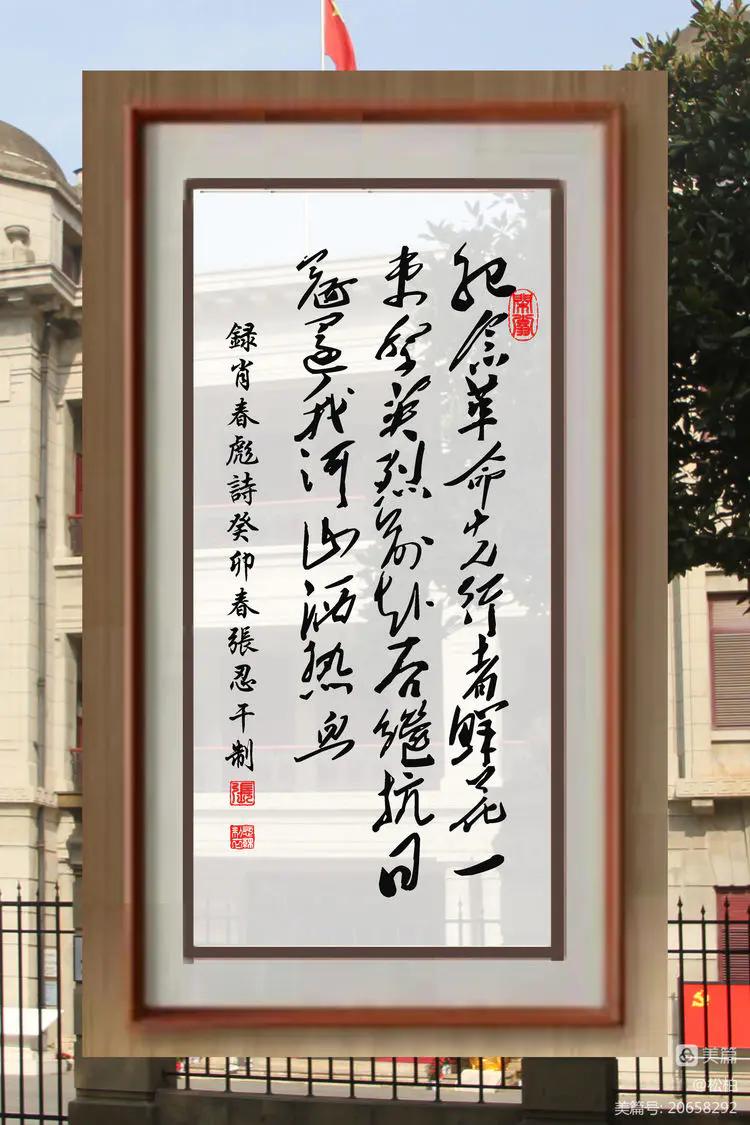 纪念革命先行者鲜花一
束祭英烈前赴后繼抗日
寇還我河山洒热血
録肖春彪詩癸卯春張忍干制
張
美篇
@松柏
美篇号: 20658292